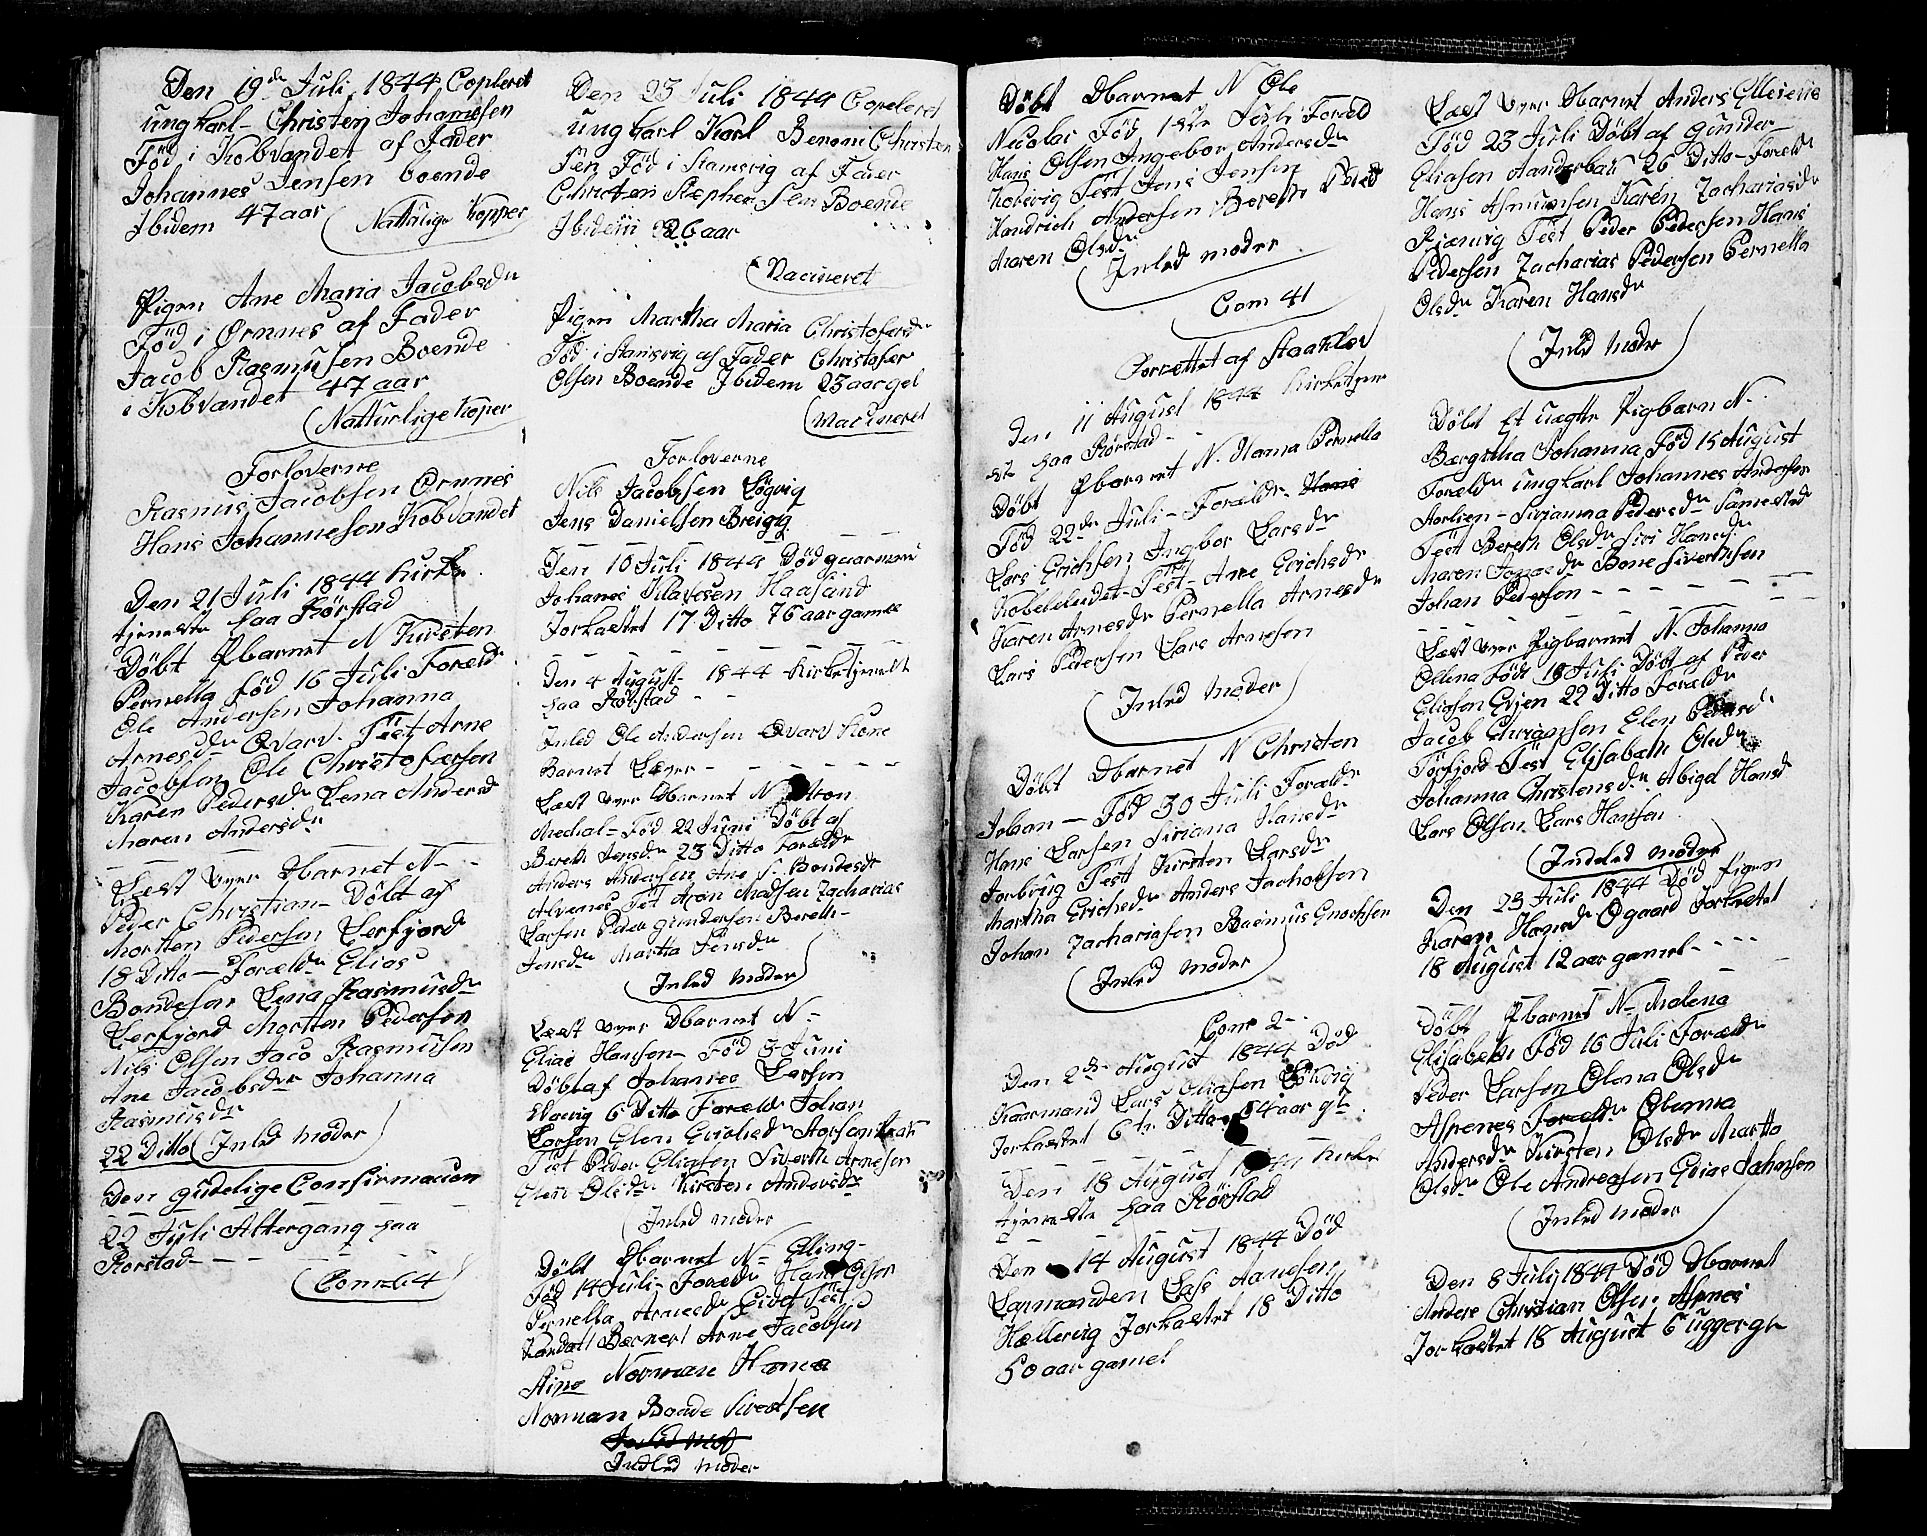 Den 19de Juli 1844 Copleret
ungkarl Christen Johannesen
Föd i Kobvandet af Fader
Johannes Jensen boende
Ibidem 47 aar
Nattulige Kopper
Pigen Ane Maria Jacobsdr
Föd i Ørnnes af Fader
Jacob Rasmusen Boende
i Kobvandet 47 aar
Natturlige Koper
Forloverne
Rasmus Jacobsen Ørnnes
Hans Johannesen Kobvandet
Den 21 Juli 1844 Kirke
tjeneste paa Rörstad
Döbt Pbarnet N Kirsten
Pernella föd 16 Juli Foræld
Ole Andersen Johanna
Arnesdr Qvarv. Test Arne
Jacobsen Ole Christofersen
Karen Pedersdr Lena Andersd
Maren Andersdr
Læst över Dbarnet N -
Peder Christian - Döbt af
Mortten Pedersen Lerfjord
18 Ditto - Forældr Elias
Bondesen Lena Rasmusdr
Lerfjord Mortten Pedersen
Nils Olsen Jaco Rasmusen
Ane Jacobsdr Johanna
Rasmusdr
22 Ditto Inled moder
Den gudelige Confirmacion
22 Juli Altergang paa
Rorstad - - -
Com 64
Den 23 Juli 1844 Copeleret
ungkarl Karl Benoni Christen
sen Föd i Stamsvig af Fader
Christen Stephensen Boende
Ibidem 26 aar
Vacineret
Pigen Martha Maria Christofersdr
Föd i Stamsvig af Fader Christofer
Olsen Boende Ibidem 23 aar gel
Vacineret
Forloverne
Nils Jacobsen Løgvig
Jens Danielsen Breigig
Den 10 Juli 1844 Död gaarmand
Johanes Haasand
Jorkastet 17 Ditto 76 aar gamel
Den 4 August 1844 Kirketjeneste
paa Rörstad
Inled Ole Andersen Qvarv Kone
Barnet Læger - - - - - -
Læst över Dbarnet N Anton
Medial - Föd 22 Juni Döbt af
Bereth Jensdr 23 Ditto Forældr
Anders Andersen Ane S. Bondesdr
Alvenes Test Aron Madsen Zacharias
Larsen Peder Gundersen Bereth -
Jensdr Martha Jensdr
Inled moder
Læst över Dbarnet N -
Elias Hansen - Föd 3 Juni
Döbt af Johannes Larsen
6 Ditto Forældr Johan
Larsen Elen Erichsdr
Test Peder Eliasen Siverth Arnesen
Elen Olsdr Kirsten Andersdr
Inled moder
Döbt Dbarnet N - Elling -
Föd 14 Juli - Forældr Hans Olsen
Pernella Arnesdr Test
Arne Jacobsen
Norman Hans
Norman Bonde Sivertsen
Indled moder
Döbt Dbarnet N Ole
Nicolai Föd 1ste Juli Foræld
Hans Olsen Ingebor Andersdr
Kobevig Test Jens Jensen
Hendrich Andersen Bereth
Maren Olsdr
Inled moder
Com 41
Forrettet af Staahlev
Den 11 August 1844 Kirketjene
ste paa Rörstad -
Döbt Pbarnet N. Hanna Pernella
Föd 22de Juli - Forældr
Lars Erichsen Ingebor Larsdr
Test - Ane Erichsdr
Karen Arnesdr Pernella Arnesdr
Lars Pedersen Lars Arnesen
Inled moder
Döbt Dbarnet N Christen
Johan - Föd 30 Juli Forældr
Hans Larsen Siriana Hansdr
Jonbrug Test Kirsten Larsdr
Martha Erichsdr Anders Jachobsen
Johan Zachariasen Rasmus Enochsen
Inled moder
Com 2 -
Den 2de August 1844 Död
Kaarmand Lars Eliasen
Jorkastet 6te Ditto 54 aar gl
Den 18 August 1844 Kirke
tjeneste paa Rörstad
Den 14 August 1844 Död
Lapmanden Lass Aanesen
Hellervig Jorkastet 18 Ditto
50 aar gamel
Læst över Dbarnet Anders
Föd 23 Juli Döbt af Gunder
Eliasen Aanderbak 26 Ditto - Forældr
Hans Asmunsen Karen Zachariasdr
Test Peder Pedersen Hans
Pedersen Zacharias Pedersen Pernella
Olsdr Karen Hansdr
Inled moder
Döbt Et uægte Pigbarn N -
Johanna Föd 15 August
Forældr ungkarl Johannes Andersen
Storlien - Sirianna Pedersdr
Test Bereth Olsdr Siri Hansdr
Maren Jonasdr Bone Siverthsen
Johan Pedersen - - -
Læst över Pigbarnet N. Johanna
Ellena Föd 18 Juli Döbt af Peder
Eliasen Evjen 22 Ditto Forældr
Jacob Elen Pedersd
Törfjord Test Elisabeth Olsdr
Johanna Christensdr Abigel Hansd
Lars Olsen Lars Hansen
Indeled moder
Den 23 Juli 1844 Död Pigen
Karen Hansdr Øgaard Jorkastet
18 August 12 aar gamel - - -
Döbt Pbarnet N - Malena
Elisabeth Föd 16 Juli Forældr
Peder Larsen Elena Olsdr
Aspenes
Andersdr Kirsten Olsdr Martto
Olsdr Ole Andreasen Elias Johansen
Inled moder
Den 8 Julij 1844 Död Dbarnet
Anders Christian Olsen Aspnes
Jorkastet 18 August 6 ugger gl